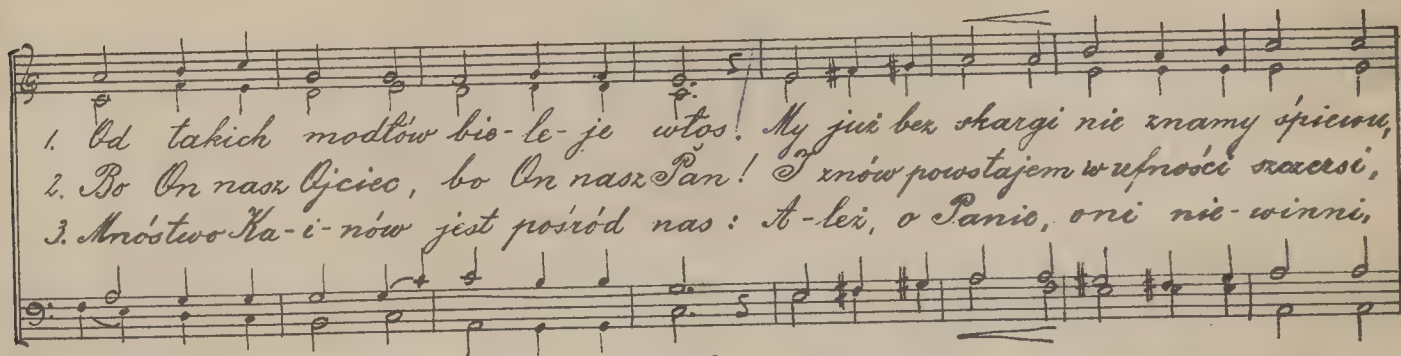 1. Od takich modłów bie-le-je włos! My już bez skargi nie znamy śpiewu,
2. Bo On nasz Ojciec, bo On nasz Pan! I znów powstajem w ufności szczersi,
3. Mnóstwo Ka-i-nów jest pośród nas: A-leż, o Panie, oni nie-winni,